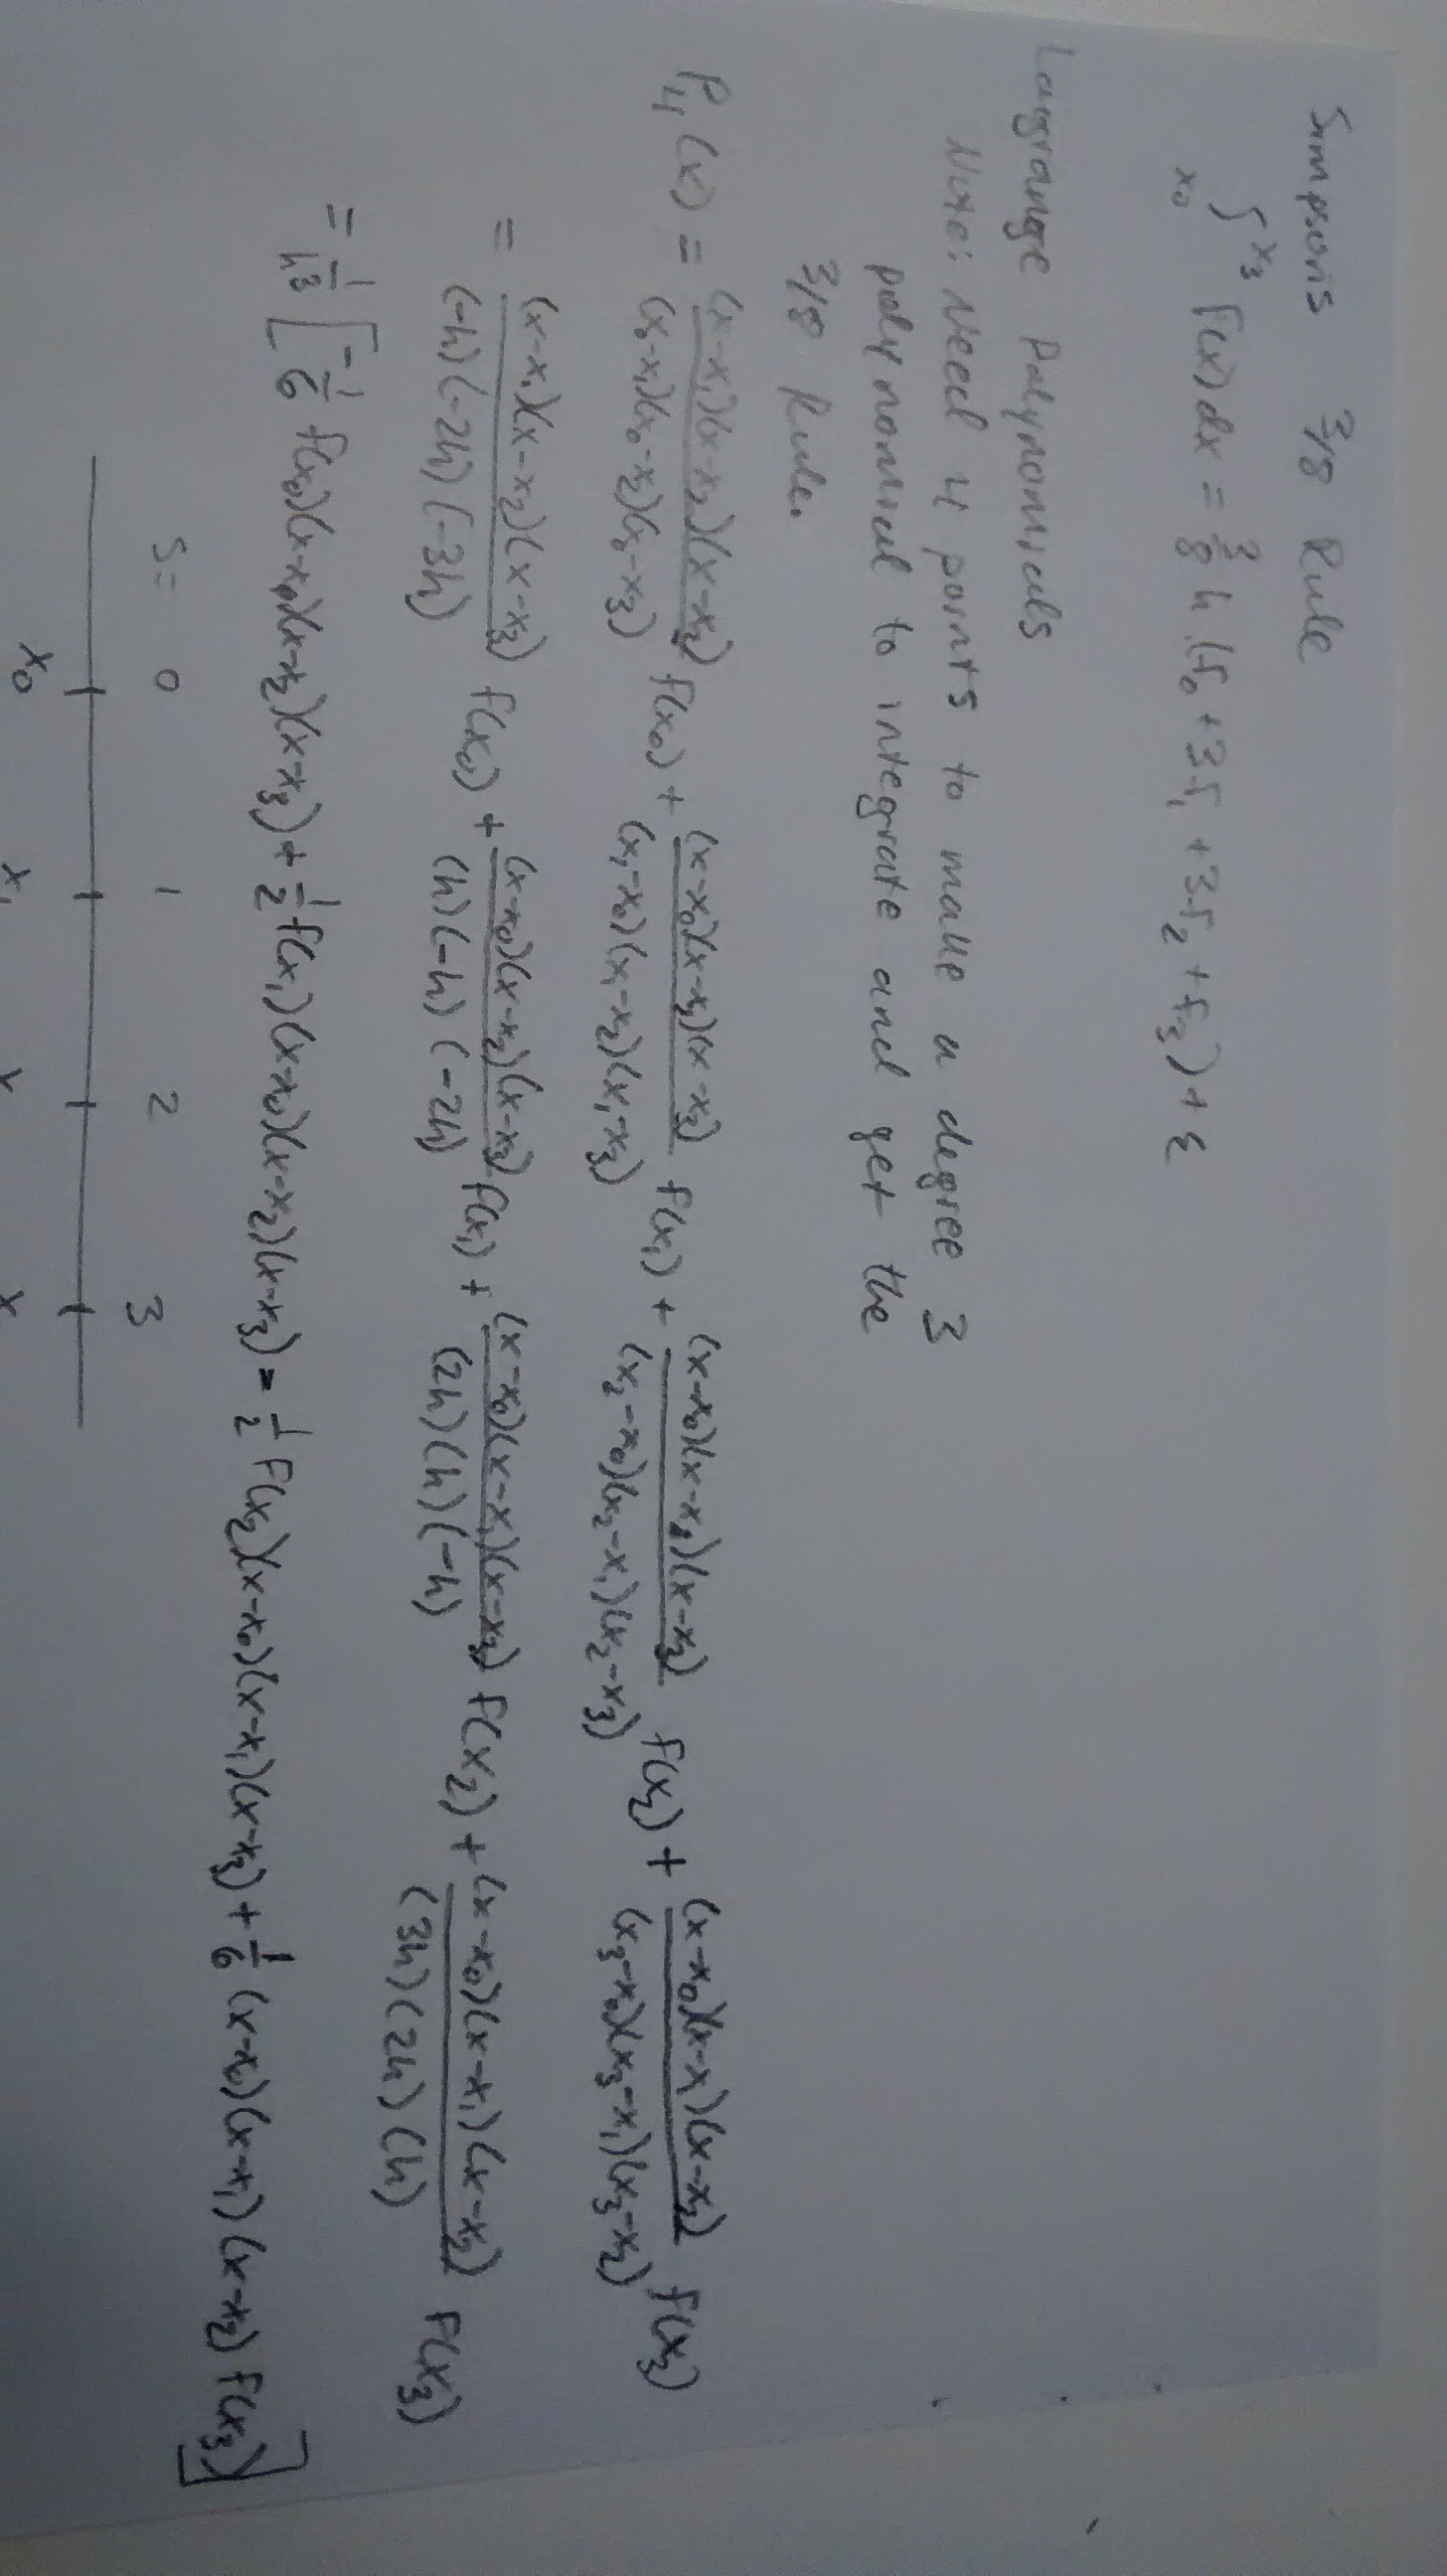 Simpson's 3/8 Rule
∫_{x0}^{x3} f(x) dx = 3/8 h (f0 + 3f1 + 3f2 + f3) + ε
Lagrange Polynomials
Note: Need 4 points to make a degree 3
polynomial to integrate and get the
3/8 Rule.
P4(x) = (x-x1)(x-x2)(x-x3)/(x0-x1)(x0-x2)(x0-x3) f(x0) + (x-x0)(x-x2)(x-x3)/(x1-x0)(x1-x2)(x1-x3) f(x1) + (x-x0)(x-x1)(x-x3)/(x2-x0)(x2-x1)(x2-x3) f(x2) + (x-x0)(x-x1)(x-x2)/(x3-x0)(x3-x1)(x3-x2) f(x3)
= (x-x1)(x-x2)(x-x3)/(-h)(-2h)(-3h) f(x0) + (x-x0)(x-x2)(x-x3)/(h)(-h)(-2h) f(x1) + (x-x0)(x-x1)(x-x3)/(2h)(h)(-h) f(x2) + (x-x0)(x-x1)(x-x2)/(3h)(2h)(h) f(x3)
= 1/h³ [-1/6 f(x0)(x-x1)(x-x2)(x-x3) + 1/2 f(x1)(x-x0)(x-x2)(x-x3) - 1/2 f(x2)(x-x0)(x-x1)(x-x3) + 1/6 (x-x0)(x-x1)(x-x2) f(x3)]
S= 0 1 2 3
x0 x1 x x